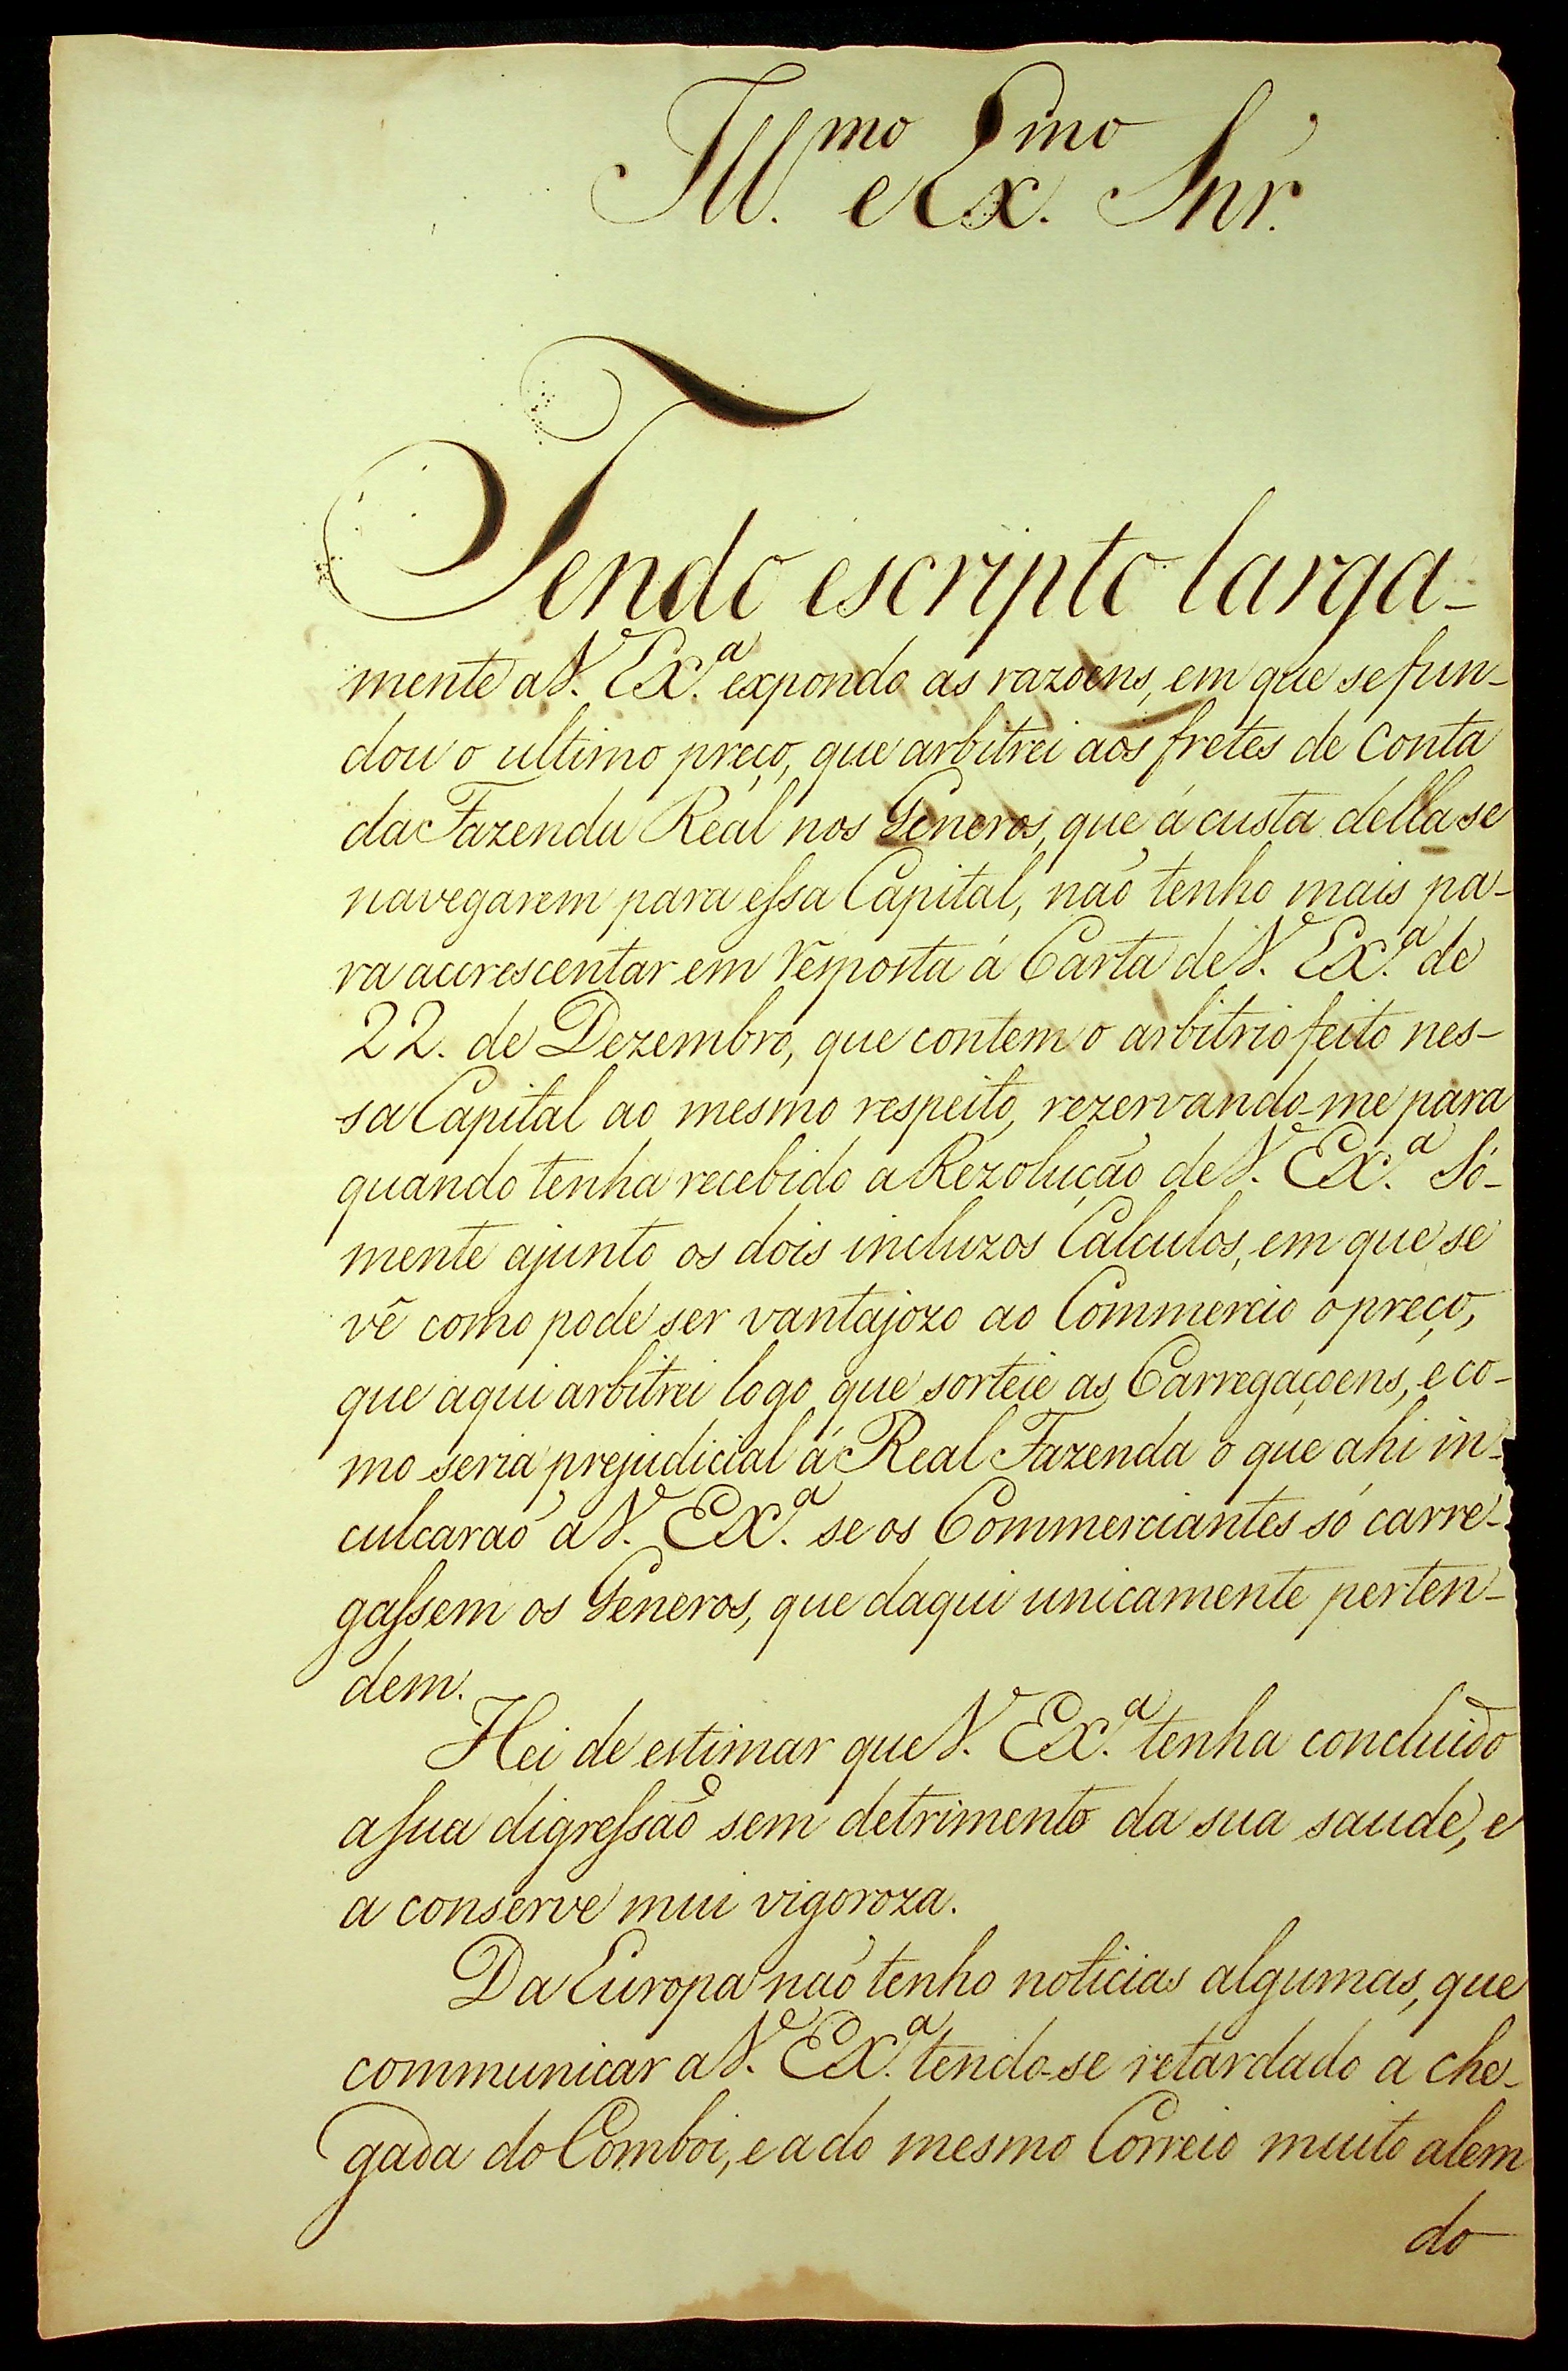 Ill.mo e Ex.mo Snr.
Tendo escripto larga-
mente a V. Ex.a expondo as razoens, em que se fun-
dou o ultimo preço, que arbitrei aos fretes de Conta
da Fazenda Real nos Generos, que á custa della se
navegarem para essa Capital, naõ tenho mais pa-
ra accrescentar em resposta á Carta de V. Ex.a de
22. de Dezembro, que contem o arbitrio feito nes-
sa Capital ao mesmo respeito, rezervando-me para
quando tenha recebido a Rezoluçaõ de V. Ex.a Só-
mente ajunto os dois incluzos Calculos, em que se
vê como pode ser vantajozo ao Commercio o preço,
que aqui arbitrei logo que sorteie as Carregaçoens, e co-
mo seria prejudicial á Real Fazenda o que ahi in-
culcaraõ a V. Ex.a se os Commerciantes só carre-
gassem os Generos, que daqui unicamente perten-
dem.
Hei de estimar que V. Ex.a tenha concluido
a sua digressaõ sem detrimento da sua saude, e
a conserve mui vigoroza.
Da Europa naõ tenho noticias algumas, que
communicar a V. Ex.a tendo-se retardado a che-
gada do Comboi, e a do mesmo Correio muito alem
do